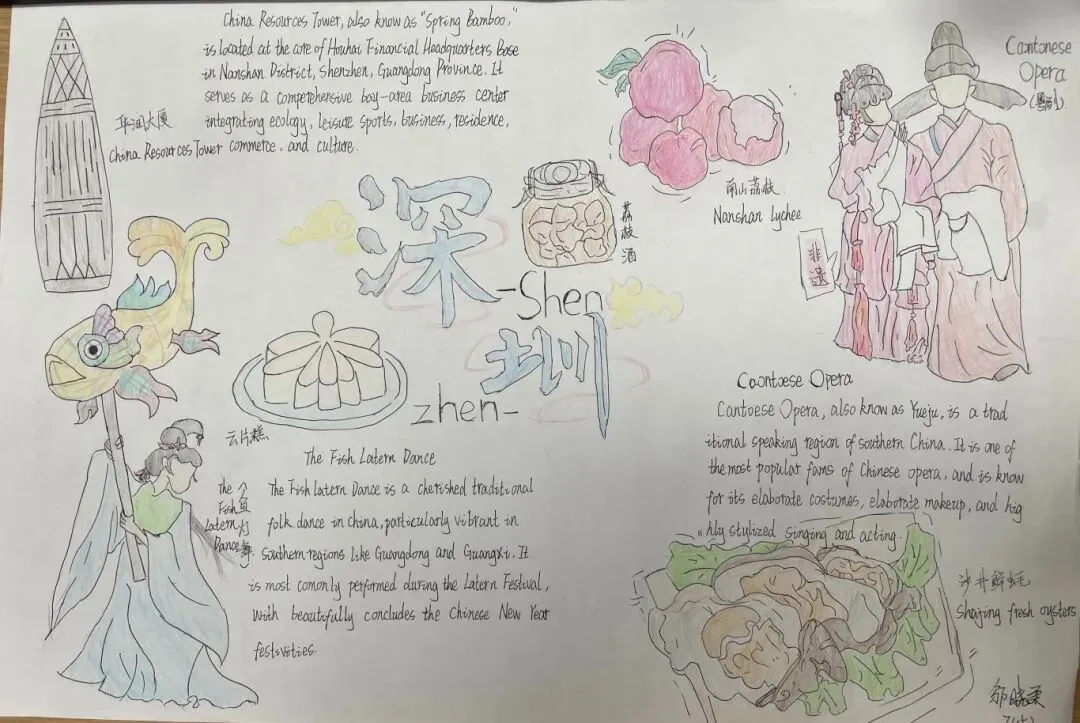 China Resources Tower, also know as "Spring Bamboo,"
is located at the core of Houhai Financial Headquarters Base
in Nanshan District, Shenzhen, Guangdong Province. It
serves as a comprehensive bay-area business center
integrating ecology, leisure sports, business, residence,
commerce, and culture.
华润大厦
China Resources Tower
深
-Shen
圳
zhen-
荔枝酒
南山荔枝
Nanshan Lychee
Cantonese
Opera
(粤剧)
非遗
云片糕
The Fish Latern Dance
The
Fish
Latern
Dance
鱼灯舞
The Fish Latern Dance is a cherished traditional
folk dance in China, particularly vibrant in
southern regions like Guangdong and Guangxi. It
is most comonly performed during the Latern Festival,
with beautifully concludes the Chinese New Year
festivities.
Caontoese Opera
Cantoese Opera, also know as Yueju, is a trad
itional speaking region of southern China. It is one of
the most popular fams of Chinese opera, and is know
for its elaborate costumes, elaborate makeup, and hig
hly stylized singing and acting.
沙井鲜蚝
Shajing fresh oysters
邹晓柔